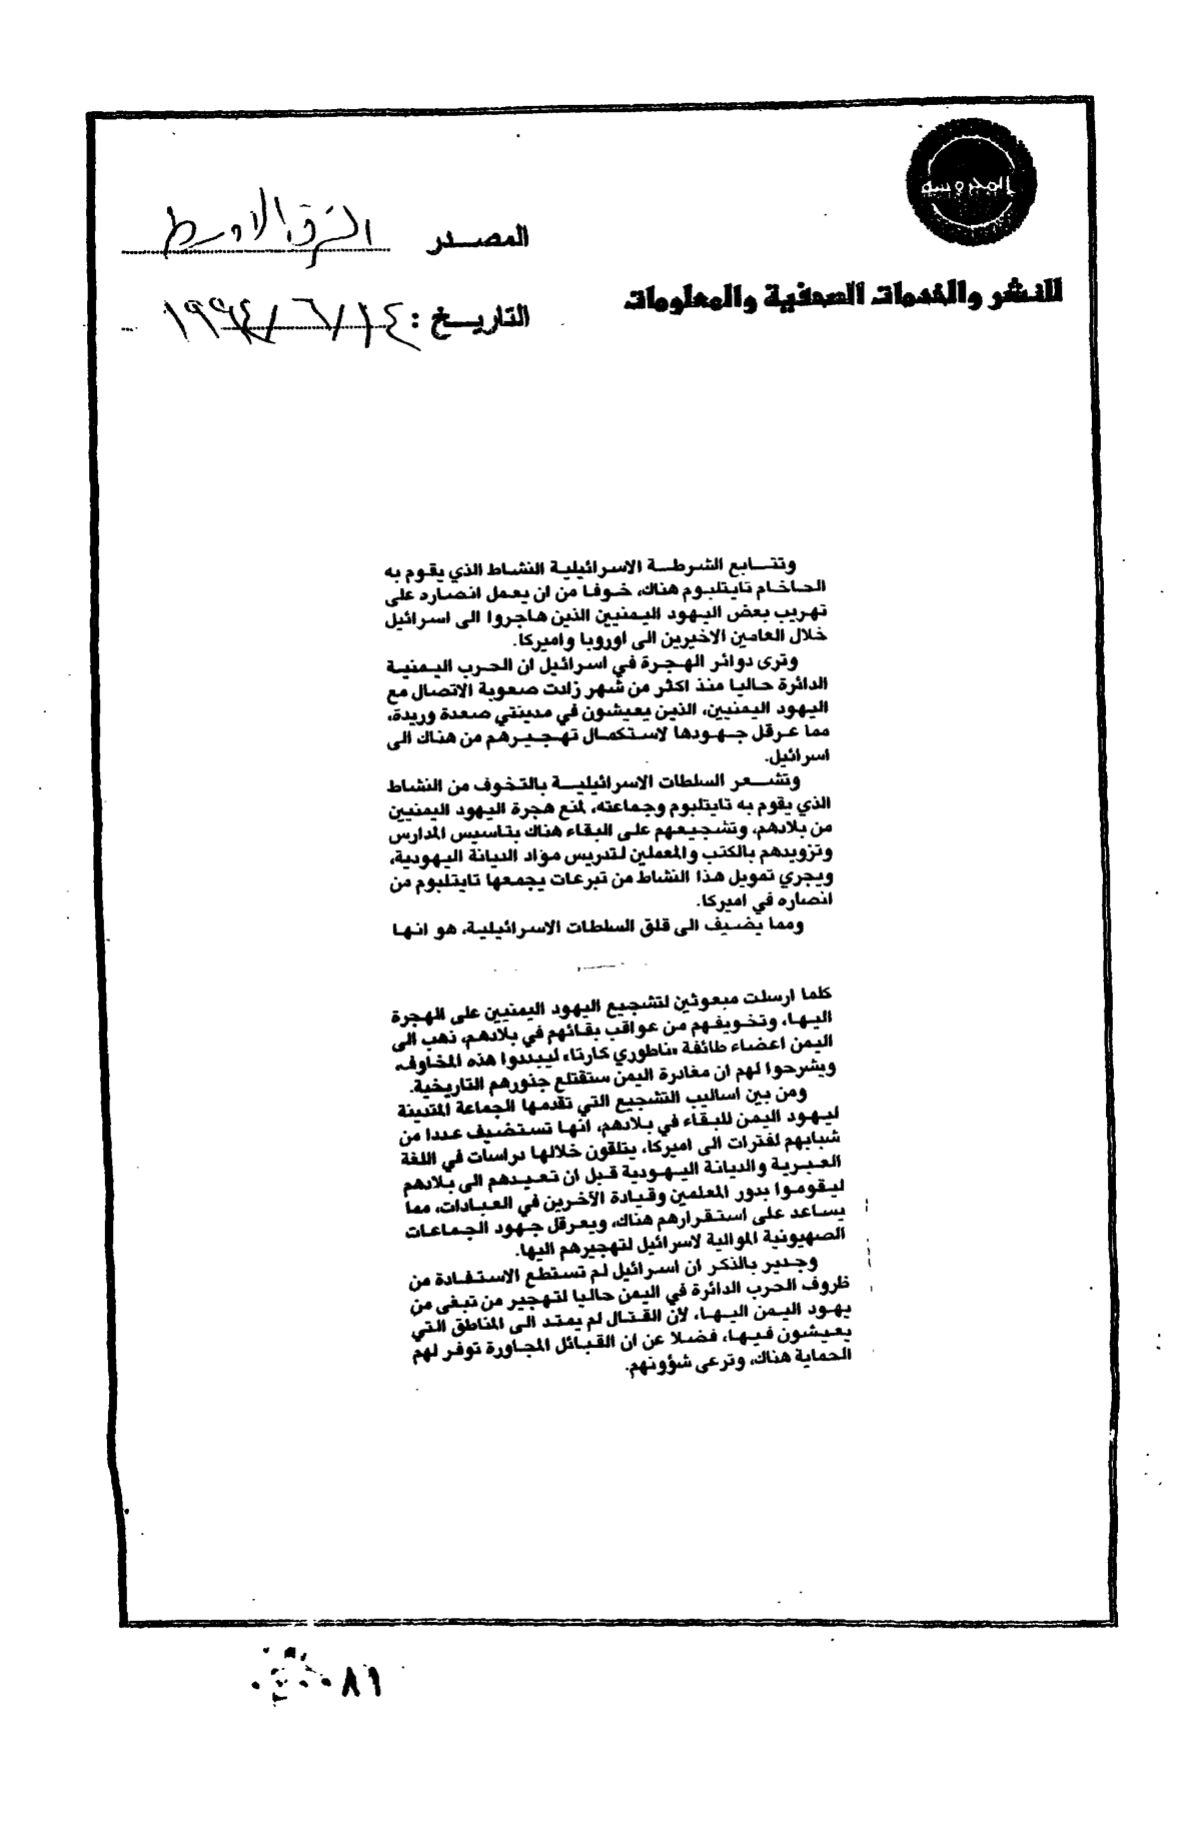 المحروسة
للنشر والخدمات الصحفية والمعلومات
المصدر الشرق الاوسط
التاريخ : ١٤/٦/١٩٩٤
وتتابع الشرطة الاسرائيلية النشاط الذي يقوم به
الحاخام تايتلبوم هناك، خوفا من ان يعمل انصاره على
تهريب بعض اليهود اليمنيين الذين هاجروا الى اسرائيل
خلال العامين الاخيرين الى اوروبا واميركا.
وترى دوائر الهجرة في اسرائيل ان الحرب اليمنية
الدائرة حاليا منذ اكثر من شهر زادت صعوبة الاتصال مع
اليهود اليمنيين، الذين يعيشون في مدينتي صعدة وريدة،
مما عرقل جهودها لاستكمال تهجيرهم من هناك الى
اسرائيل.
وتشعر السلطات الاسرائيلية بالتخوف من النشاط
الذي يقوم به تايتلبوم وجماعته، لمنع هجرة اليهود اليمنيين
من بلادهم، وتشجيعهم على البقاء هناك بتاسيس المدارس
وتزويدهم بالكتب والمعملين لتدريس مواد الديانة اليهودية،
ويجري تمويل هذا النشاط من تبرعات يجمعها تايتلبوم من
انصاره في اميركا.
ومما يضيف الى قلق السلطات الاسرائيلية، هو انها
كلما ارسلت مبعوثين لتشجيع اليهود اليمنيين على الهجرة
اليها، وتخويفهم من عواقب بقائهم في بلادهم، ذهب الى
اليمن اعضاء طائفة «ناطوري كارتا» ليبددوا هذه المخاوف،
ويشرحوا لهم ان مغادرة اليمن ستقتلع جذورهم التاريخية.
ومن بين اساليب التشجيع التي تقدمها الجماعة المتدينة
ليهود اليمن للبقاء في بلادهم، انها تستضيف عددا من
شبابهم لفترات الى اميركا، يتلقون خلالها دراسات في اللغة
العبرية والديانة اليهودية قبل ان تعيدهم الى بلادهم
ليقوموا بدور المعلمين وقيادة الآخرين في العبادات، مما
يساعد على استقرارهم هناك، ويعرقل جهود الجماعات
الصهيونية الموالية لاسرائيل لتهجيرهم اليها.
وجدير بالذكر ان اسرائيل لم تستطع الاستفادة من
ظروف الحرب الدائرة في اليمن حاليا لتهجير من تبقى من
يهود اليمن اليها، لان القتال لم يمتد الى المناطق التي
يعيشون فيها، فضلا عن ان القبائل المجاورة توفر لهم
الحماية هناك، وترعى شؤونهم.